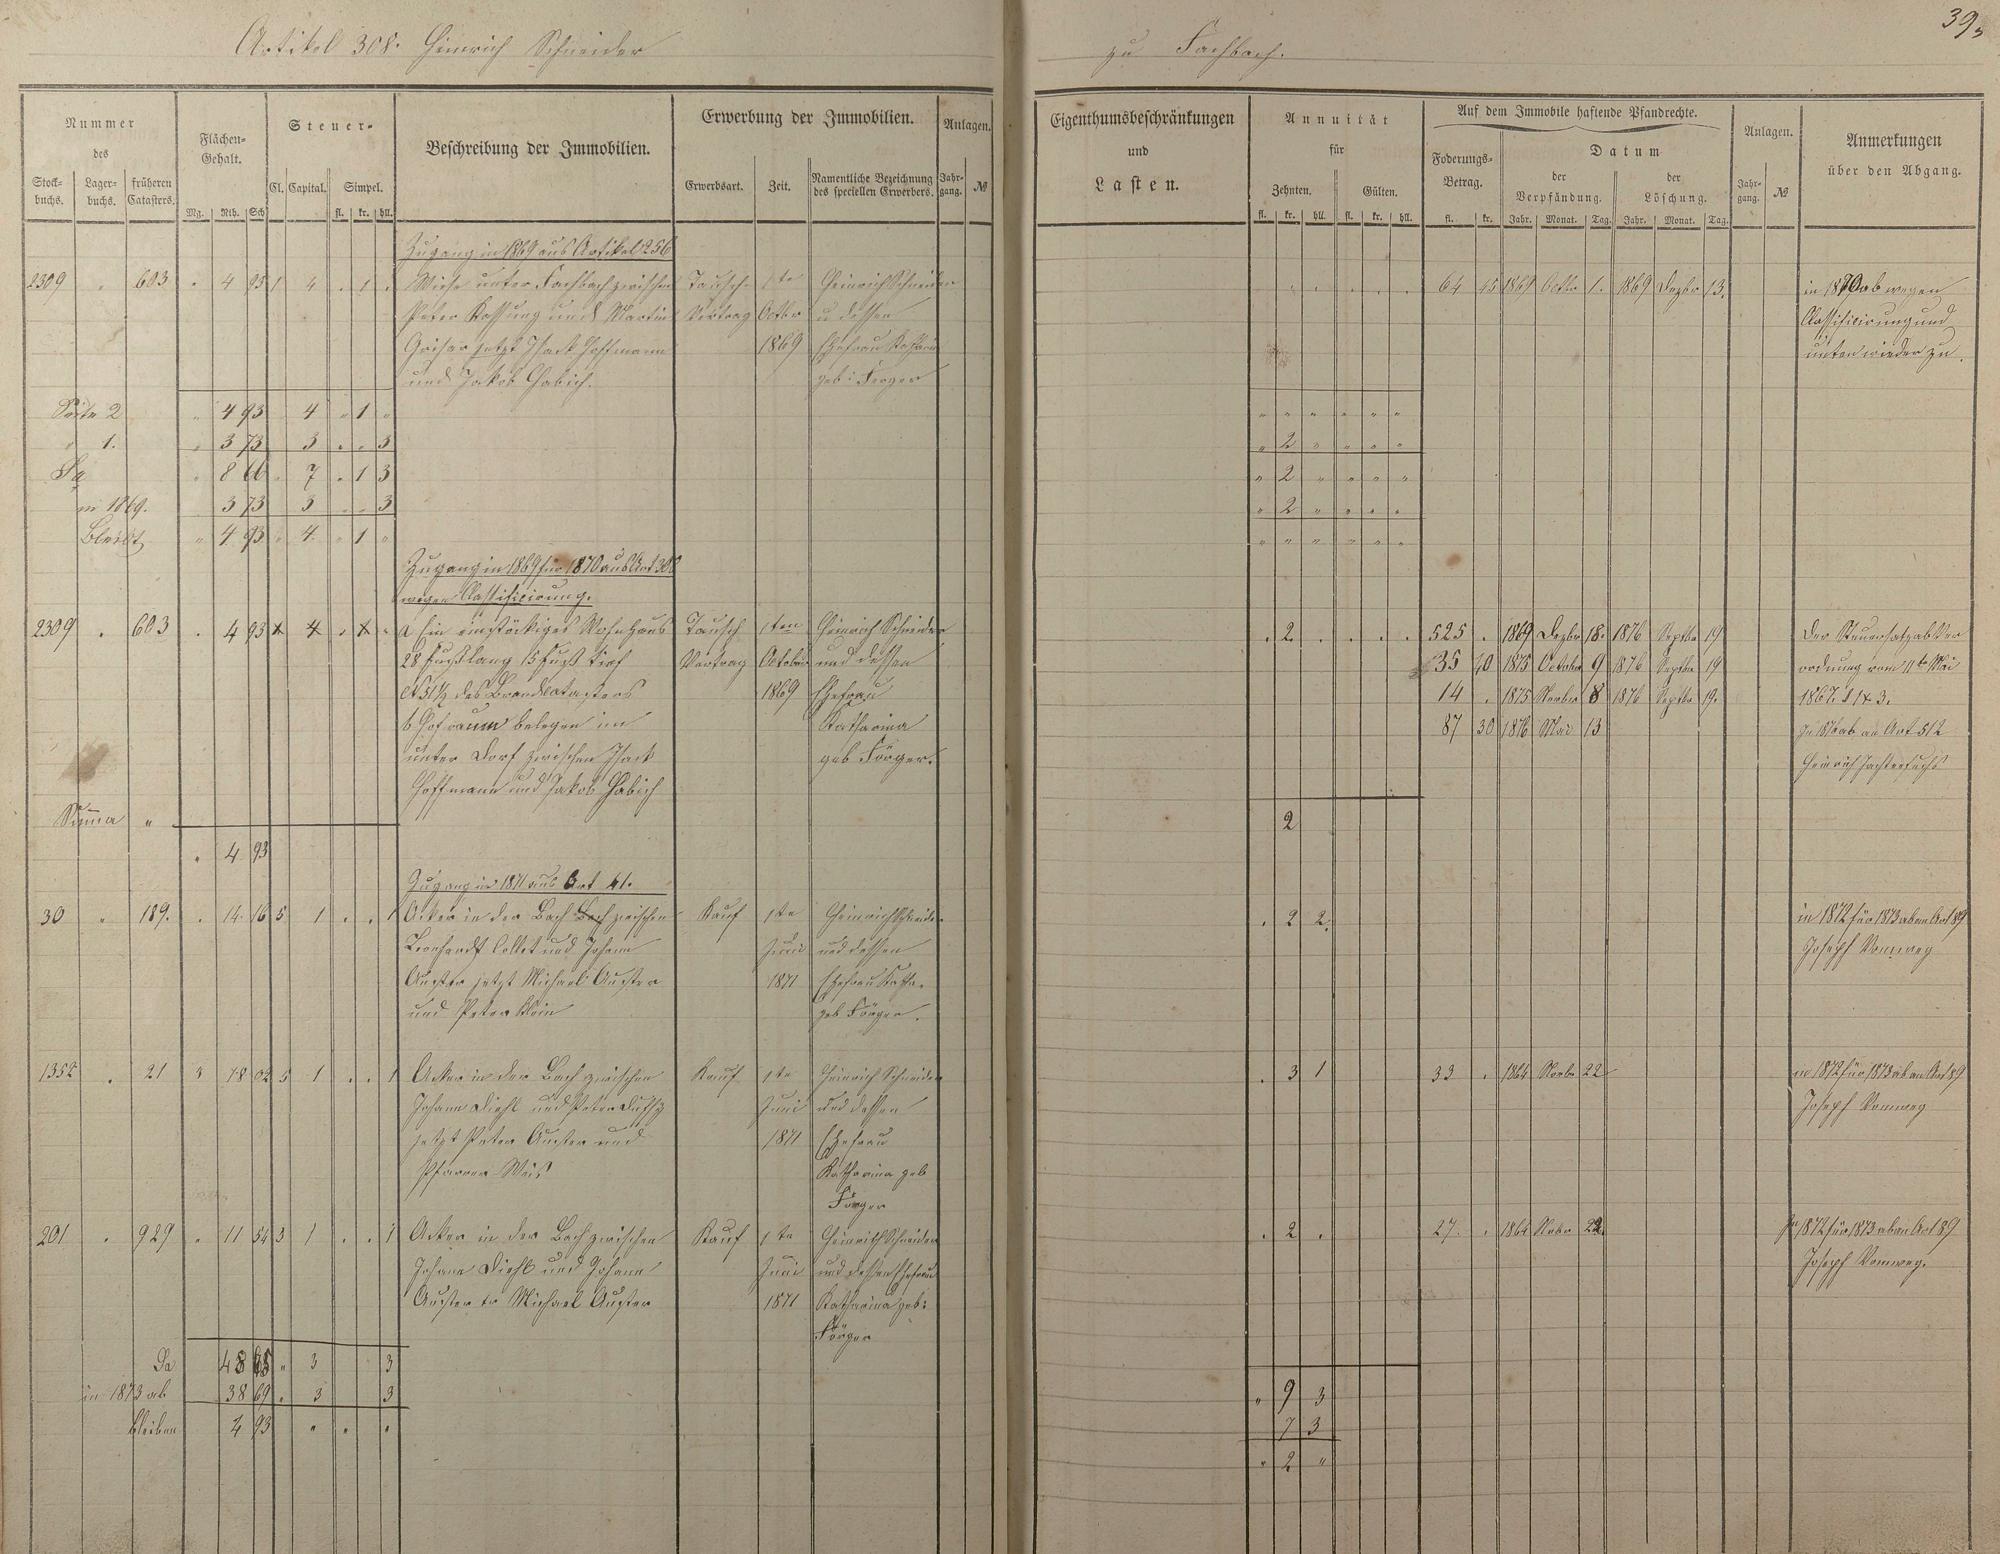 Artikel 308. Heinrich Schneider
zu Fachbach.
39
Nummer
des
Stock-
buchs.
Lager-
buchs.
früheren
Catasters.
Flächen-
Gehalt.
Mg. Rth. Sch
Steuer-
Cl. Capital. Simpel.
fl. kr. hll.
Beschreibung der Immobilien.
Erwerbung der Immobilien.
Erwerbsart. Zeit.
Namentliche Bezeichnung
des speciellen Erwerbers.
Anlagen.
Jahr-
gang.
№
Eigenthumsbeschränkungen
und
Lasten.
Annuität
für
Zehnten. Gülten.
fl. kr. hll. fl. kr. hll.
Auf dem Immobile haftende Pfandrechte.
Foderungs-
Betrag.
fl. kr.
Datum
der
Verpfändung.
der
Löschung.
Jahr. Monat. Tag. Jahr. Monat. Tag.
Anlagen.
Jahr-
gang.
№
Anmerkungen
über den Abgang.
Zugang in 1869 aus Artikel 256
2309 " 603 " 4 93 1 4 . 1 . Wiese unter Fachbach zwischen Tausch- 1te Heinrich Schneider 64 15 1869 Octbr 1. 1869 Dezbr 13. in 1870 ab wegen
Peter Kossung und Martin Vertrag Octbr u dessen Classificirung und
Grisar jetzt Isack Hoffmann 1869 Ehefrau unten wieder zu.
und Jakob Habich. geb:
Seite 2 " 4 93 4 " 1 "
" 1. " 3 73 3 . . 3 " 2 "
Sa " 8 66 7 . 1 3 " 2 "
in 1869. 3 73 3 3 " 2 "
bleibt " 4 93 4 " 1 "
Zugang in 1869 für 1870 aus Art 308
wegen Classificirung.
2309 . 603 . 4 93 a Ein einstöckiges Wohnhaus Tausch 1ten Heinrich Schneider . 2 . 525 . 1869 Dezbr 18. 1876 Septbr 19 Der Steuersatz ab Ver
28 Fuß lang 15 Fuß tief Vertrag October und dessen 35 40 1875 October 9 1876 Septbr 19 ordnung vom 11te Mai
des Brandcatasters 1869 Ehefrau 14 . 1875 Novbr 8 1876 Septbr 19.
b Hofraum belegen im Katharina 87 30 1876 Mai 13 ab an Art 512
unter Dorf zwischen Isack geb Förger. Heinrich
Hoffmann und Jakob Habich
Summa " 2
. 4 93
Zugang in 1871 aus Art 41.
30 " 189. . 14 16 5 1 . . 1 Acker in der Bach zwischen Kauf 1te Heinrich Schneider . 2 2. in 1872 für 1873 ab an Art 89
Leonhardt Collet und Johann Juni und dessen Joseph Vomweg
Auster jetzt Michael Auster 1871 Ehefrau Katha.
und Peter Klein geb Förger.
1352 . 21 3 18 02 5 1 . . 1 Acker in der Bach zwischen Kauf 1te Heinrich Schneider . 3 1 33 . 1864 Novbr 22 in 1872 für 1873 ab an Art 89
Johann Diehl und Peter Juni und dessen Joseph Vomweg
jetzt Peter Auster und 1871 Ehefrau
Pfarrer Katharina geb
Förger
201 . 929 . 11 54 3 1 . . 1 Acker in der Bach zwischen Kauf 1te Heinrich Schneider . 2 . 27. . 1864 Novbr 22. In 1872 für 1873 ab an Art 89
Johann Diehl und Johann Juni und dessen Ehefrau Joseph Vomweg.
Auster Michael Auster 1871 Katharina geb:
Förger
Sa 48 65 " 3 3
in 1873 ab 38 69 . 3 3 " 9 3
bleiben 4 93 " . " 7 3
" 2 "